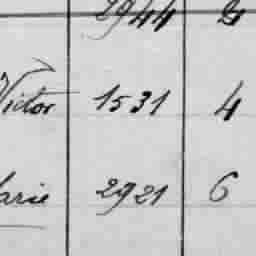 2944
Victor 1531 4
arie 2921 6